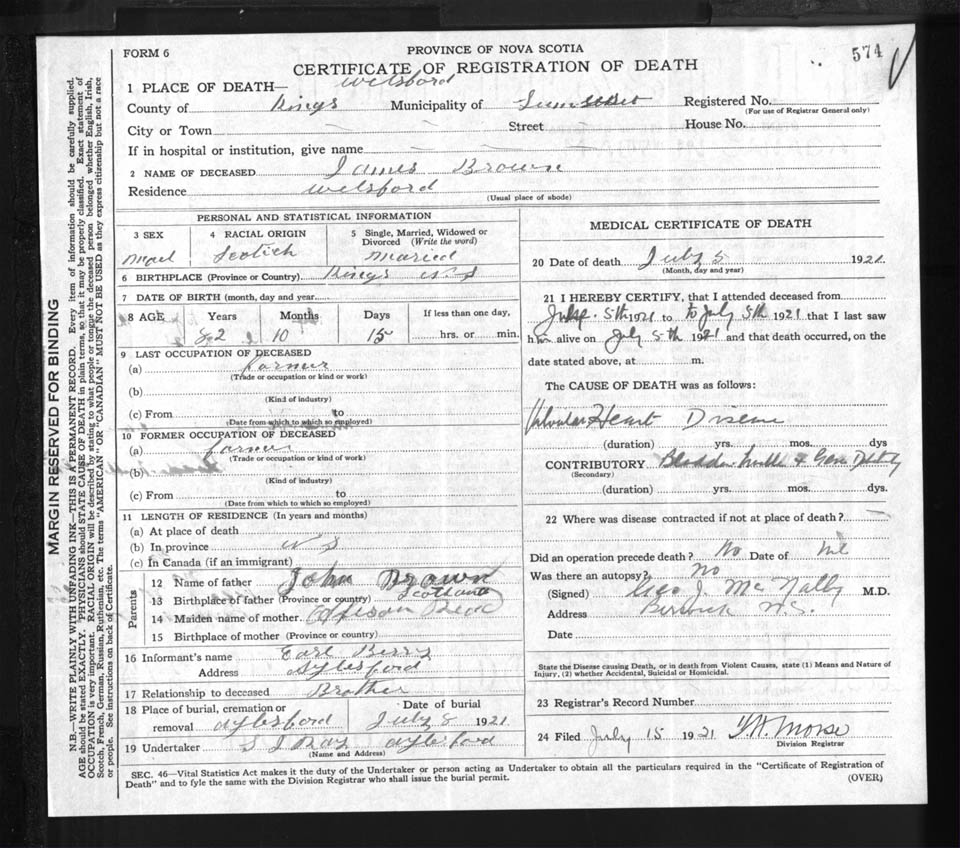 FORM 6
PROVINCE OF NOVA SCOTIA
574
CERTIFICATE OF REGISTRATION OF DEATH
1 PLACE OF DEATH— Welsford
County of Kings Municipality of Registered No.
(For use of Registrar General only)
City or Town — — Street — House No.
If in hospital or institution, give name — — — —
2 NAME OF DECEASED James Brown
Residence Welsford
(Usual place of abode)
PERSONAL AND STATISTICAL INFORMATION
3 SEX
Mael
4 RACIAL ORIGIN
Scotich
5 Single, Married, Widowed or
Divorced (Write the word)
Maried
6 BIRTHPLACE (Province or Country) Kings N S
7 DATE OF BIRTH (month, day and year)
8 AGE Years Months Days If less than one day,
82 10 15 hrs. or min.
9 LAST OCCUPATION OF DECEASED
(a) Farmer
(Trade or occupation or kind or work)
(b)
(Kind of industry)
(c) From to
(Date from which to which so employed)
10 FORMER OCCUPATION OF DECEASED
(a) Farmer
(Trade or occupation or kind of work)
(b)
(Kind of industry)
(c) From to
(Date from which to which so employed)
11 LENGTH OF RESIDENCE (In years and months)
(a) At place of death
(b) In province N S
(c) In Canada (if an immigrant)
Parents
12 Name of father John Brown
13 Birthplace of father (Province or country) Scotland
14 Maiden name of mother
15 Birthplace of mother (Province or country)
16 Informant's name Earl Berry
Address Aylesford
17 Relationship to deceased Brother
18 Place of burial, cremation or Date of burial
removal Aylesford July 8 1921
19 Undertaker Aylesford
(Name and Address)
MEDICAL CERTIFICATE OF DEATH
20 Date of death July 5 1921
(Month, day and year)
21 I HEREBY CERTIFY, that I attended deceased from
5th 1921 to to July 5th 1921 that I last saw
him alive on July 5th 1921 and that death occurred, on the
date stated above, at m.
The CAUSE OF DEATH was as follows:
Valvular Heart Disease
(duration) yrs. mos. dys
CONTRIBUTORY Bladder & Gen
(Secondary)
(duration) yrs. mos. dys.
22 Where was disease contracted if not at place of death? —
Did an operation precede death? No Date of
Was there an autopsy? No
(Signed) Geo J. McNally M.D.
Address Berwick N.S.
Date
State the Disease causing Death, or in death from Violent Causes, state (1) Means and Nature of
Injury, (2) whether Accidental, Suicidal or Homicidal.
23 Registrar's Record Number
24 Filed July 15 1921 Morse
Division Registrar
SEC. 46—Vital Statistics Act makes it the duty of the Undertaker or person acting as Undertaker to obtain all the particulars required in the "Certificate of Registration of
Death" and to fyle the same with the Division Registrar who shall issue the burial permit.
(OVER)
MARGIN RESERVED FOR BINDING
N.B.—WRITE PLAINLY WITH UNFADING INK—THIS IS A PERMANENT RECORD. Every item of information should be carefully supplied.
AGE should be stated EXACTLY. PHYSICIANS should STATE CAUSE OF DEATH in plain terms, so that it may be properly classified. Exact statement of
OCCUPATION is very important. RACIAL ORIGIN will be described by stating to what people or tongue the deceased person belonged whether English, Irish,
Scotch, French, German, Russian, Ruthenian, etc. The terms "AMERICAN" OR "CANADIAN" MUST NOT BE USED as they express citizenship but not a race
or people. See instructions on back of Certificate.